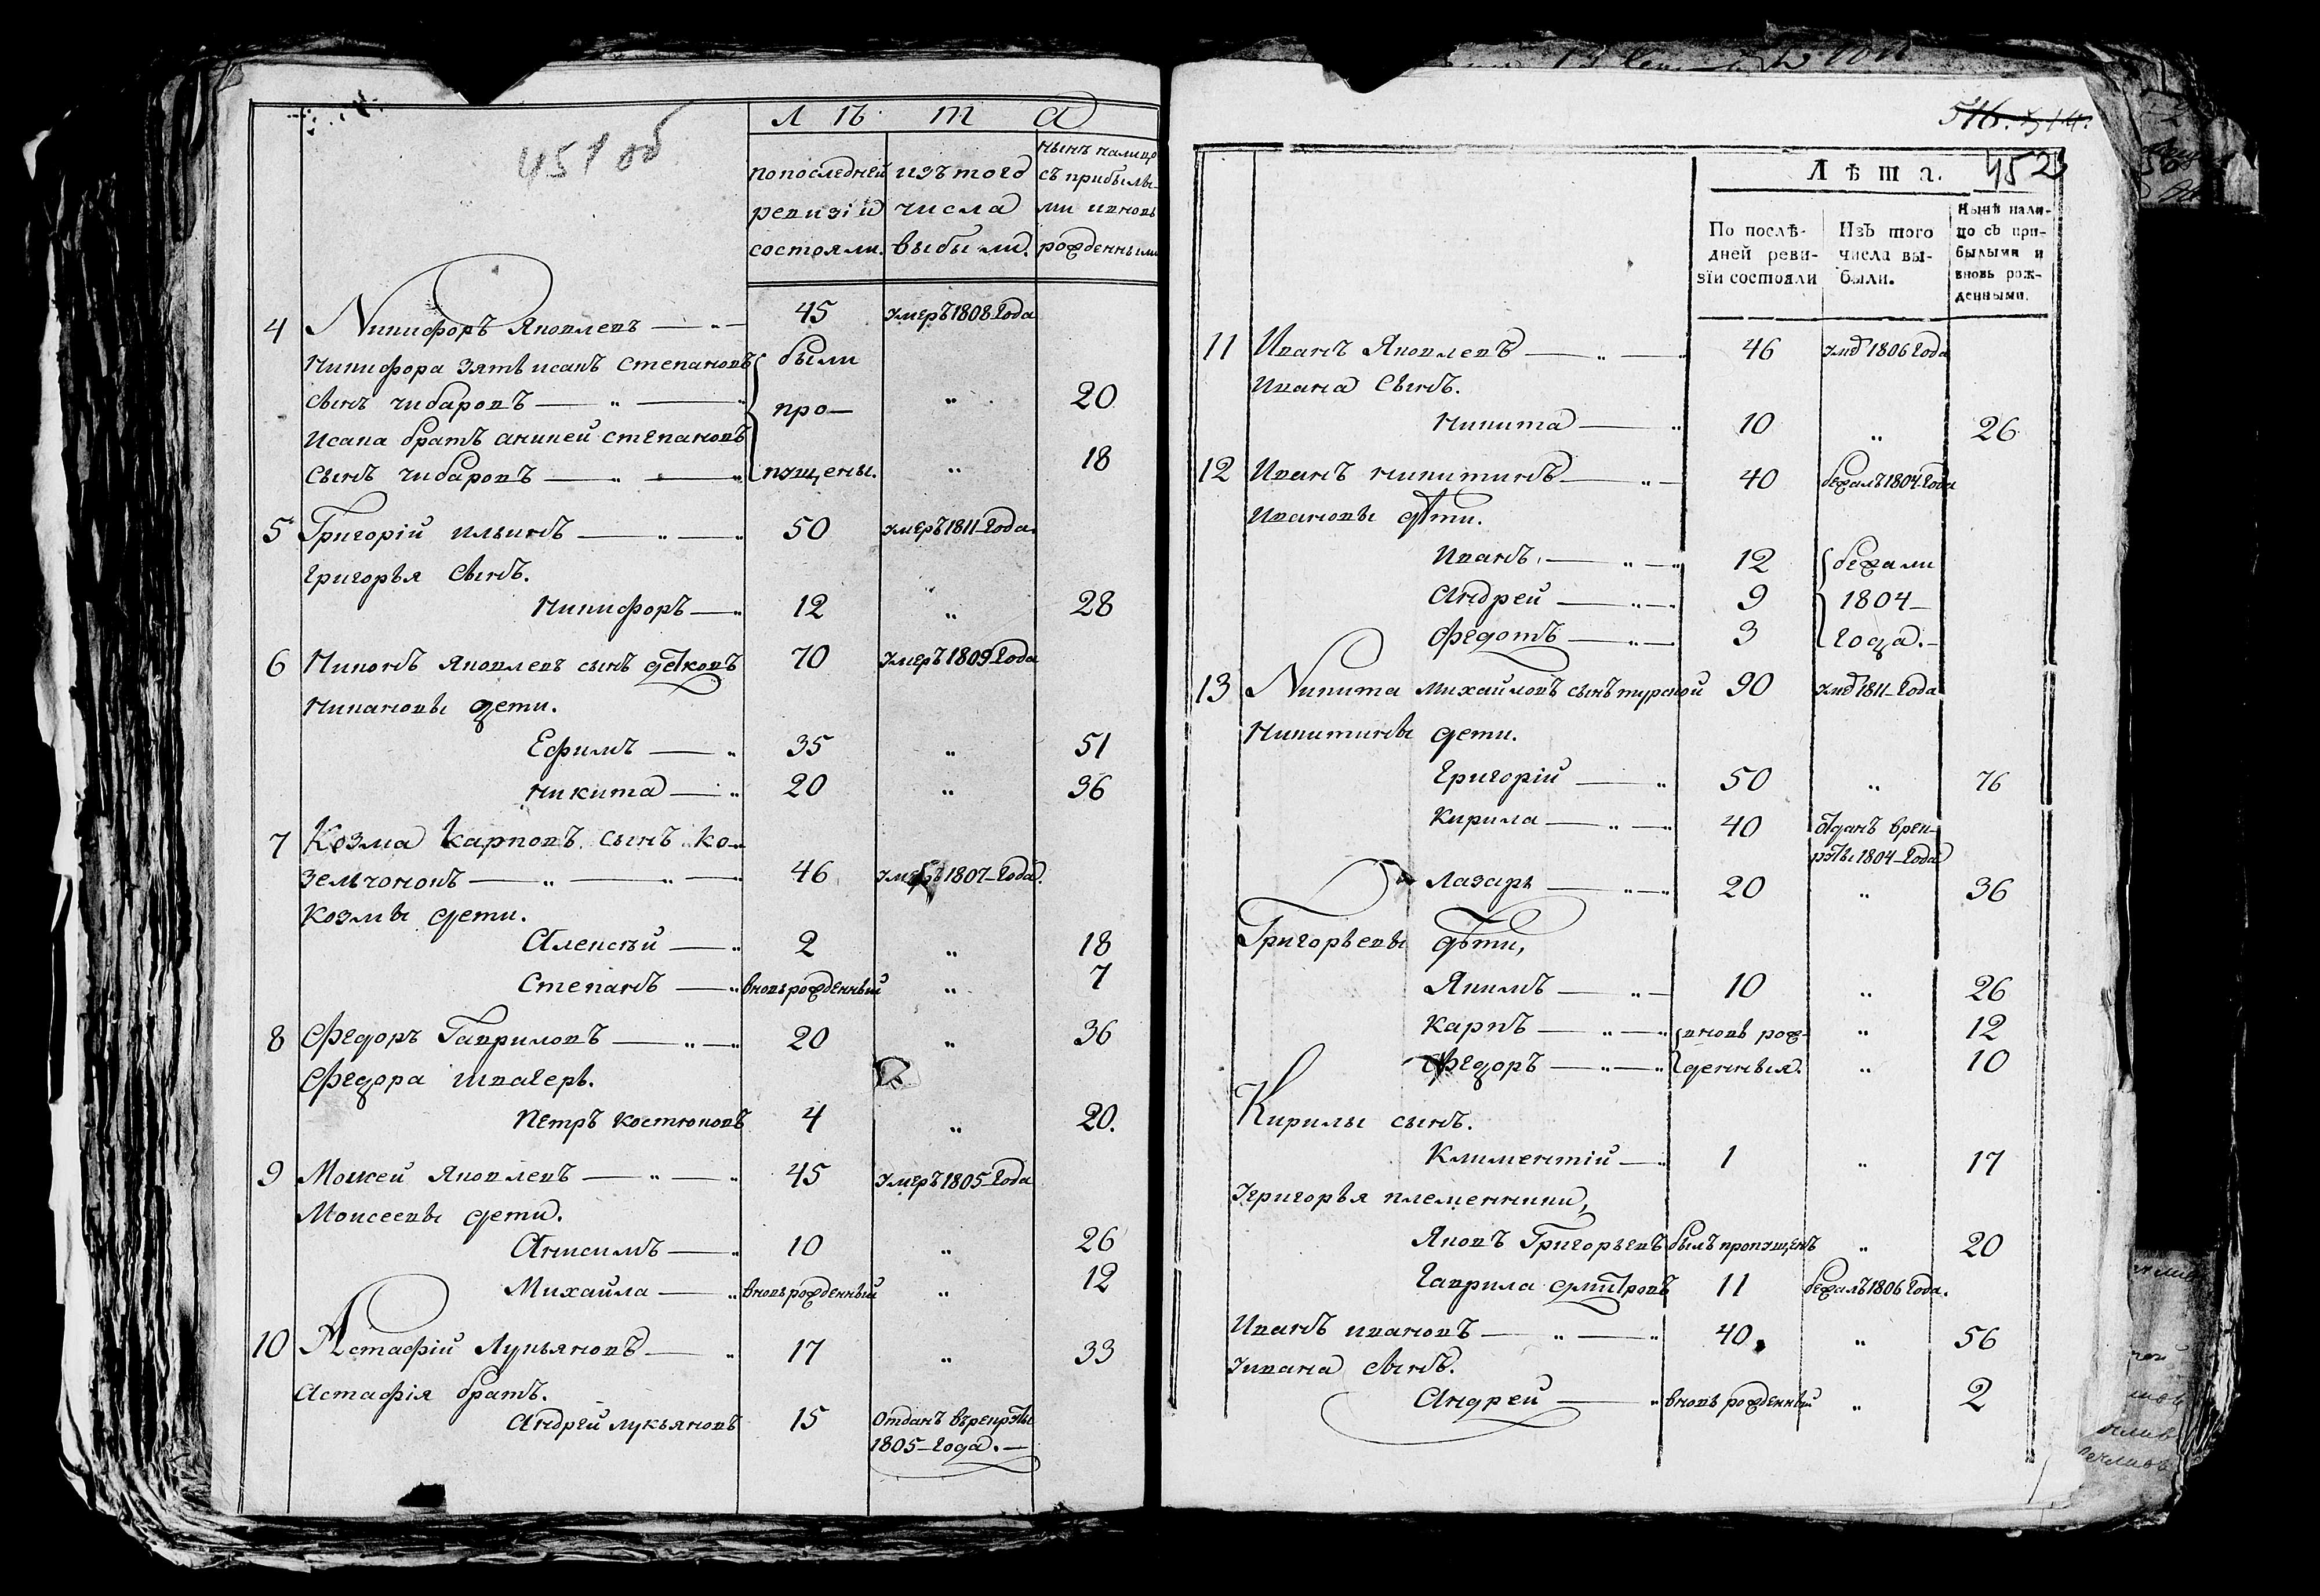 451 об
Лѣта
По последней ревизіи состояли.
изъ того числа выбыли.
Нынѣ налицо съ прибылыми и вновь рожденными
4 Никифоръ Яковлевъ — 45 умеръ 1808 Года
Никифора зять исакъ степановъ были
сынъ чибаровъ — про- „ 20
Исака братъ аникей степановъ
сынъ чибаровъ — пущены. „ 18
5 Григорій ильинъ — 50 умеръ 1811 Года.
Григорья сынъ.
Никифоръ — 12 „ 28
6 Никонъ яковлевъ сынъ дѣтковъ 70 умеръ 1809 Года
Никановы дети.
Ефимъ — 35 „ 51
Никита — 20 „ 36
7 Козма Карповъ сынъ ко-
зельчоновъ — 46 умеръ 1807 Года.
Козмы дети.
Алексѣй — 2 „ 18
Степанъ — вновьрожденный „ 7
8 Федоръ Гавриловъ — 20 „ 36
Федора швагеръ.
Петръ Костюковъ 4 „ 20.
9 Мойсей Яковлевъ — 45 умеръ 1805 Года
Моисеевы дети.
Анисимъ — 10 „ 26
Михайла — вновьрожденный „ 12
10 Астафій Лукьяновъ — 17 „ 33
Астафія братъ.
Андрей лукьяновъ 15 Отданъ врекруты
1805 Года. —
516. 514.
452
Лѣта.
По послѣдней ревизіи состояли
Изъ того числа выбыли.
Нынѣ налицо съ прибылыми и вновь рожденными.
11 Иванъ Яковлевъ — 46 умѣ 1806 Года
Ивана Сынъ.
Никита — 10 „ 26
12 Иванъ Никитинъ — 40 бежалъ 1804 Года
Ивановы дѣти.
Иванъ. — 12 бежали
Андрей — 9 1804
Федотъ — 3 Года.
13 Никита михайловъ сынъ турской 90 умѣ 1811 Года
Никитины дети.
Григорій — 50 „ 76
Кирила — 40 ѿданъ врек-
руты 1804 Года
Лазарь — 20 „ 36
Григорьевы дѣти,
Якимъ — 10 „ 26
Карпъ — вновь рож- „ 12
Федоръ — денныя. „ 10
Кирилы сынъ.
Климентій — 1 „ 17
Угригорья племенники,
Яковъ Григорьевъ былъ пропущенъ „ 20
Гаврила дмитровъ 11 бежалъ 1806 Года.
Иванъ ивановъ — 40. „ 56
Уивана сынъ.
Андрей — вновь рожденный „ 2